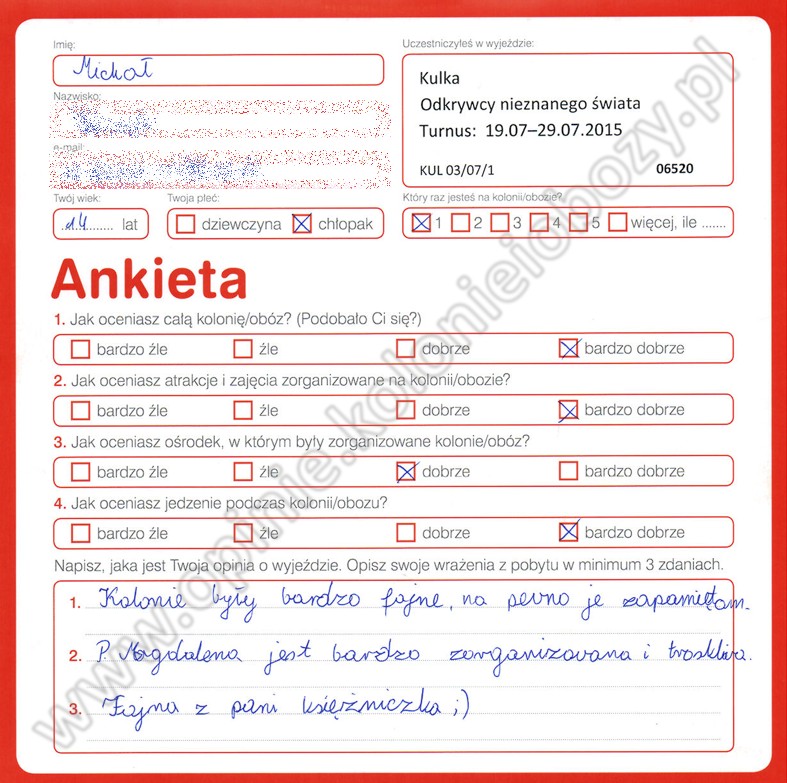 Imię:
Michał
Nazwisko:
e-mail:
Twój wiek:
14 lat
Twoja płeć:
dziewczyna chłopak
Uczestniczyłeś w wyjeździe:
Kulka
Odkrywcy nieznanego świata
Turnus: 19.07–29.07.2015
KUL 03/07/1 06520
Który raz jesteś na kolonii/obozie?
1 2 3 4 5 więcej, ile .......
Ankieta
1. Jak oceniasz całą kolonię/obóz? (Podobało Ci się?)
bardzo źle źle dobrze bardzo dobrze
2. Jak oceniasz atrakcje i zajęcia zorganizowane na kolonii/obozie?
bardzo źle źle dobrze bardzo dobrze
3. Jak oceniasz ośrodek, w którym były zorganizowane kolonie/obóz?
bardzo źle źle dobrze bardzo dobrze
4. Jak oceniasz jedzenie podczas kolonii/obozu?
bardzo źle źle dobrze bardzo dobrze
Napisz, jaka jest Twoja opinia o wyjeździe. Opisz swoje wrażenia z pobytu w minimum 3 zdaniach.
1. Kolonie były bardzo fajne, na pewno je zapamiętam.
2. P. Magdalena jest bardzo zorganizowana i troskliwa.
3. Fajna z pani księżniczka ;)
www.opinie.kolonieiobozy.pl